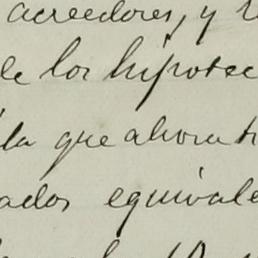 acreedores, y
de los hipotec
la que ahora t
ados equivale